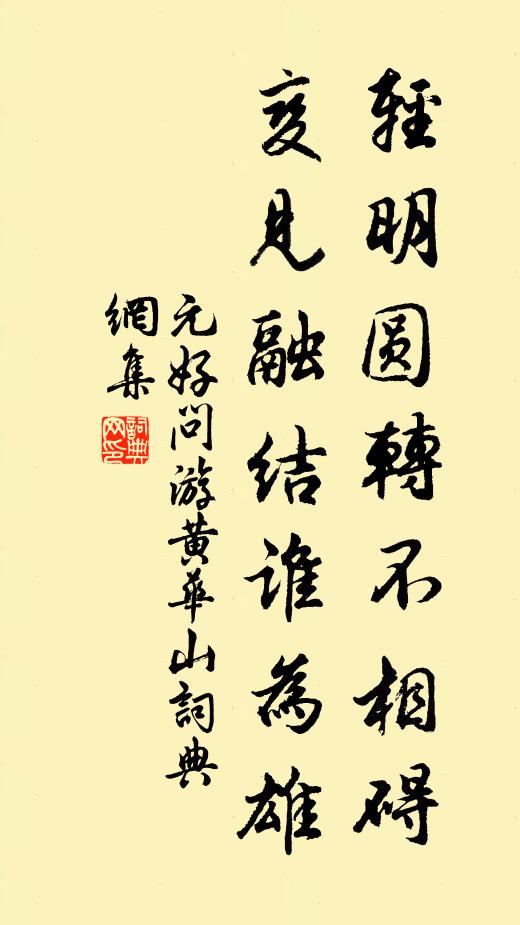 輕明圓轉不相碍
变見融結誰為雄
元好問游黄華山詞典
網集
詞典网印